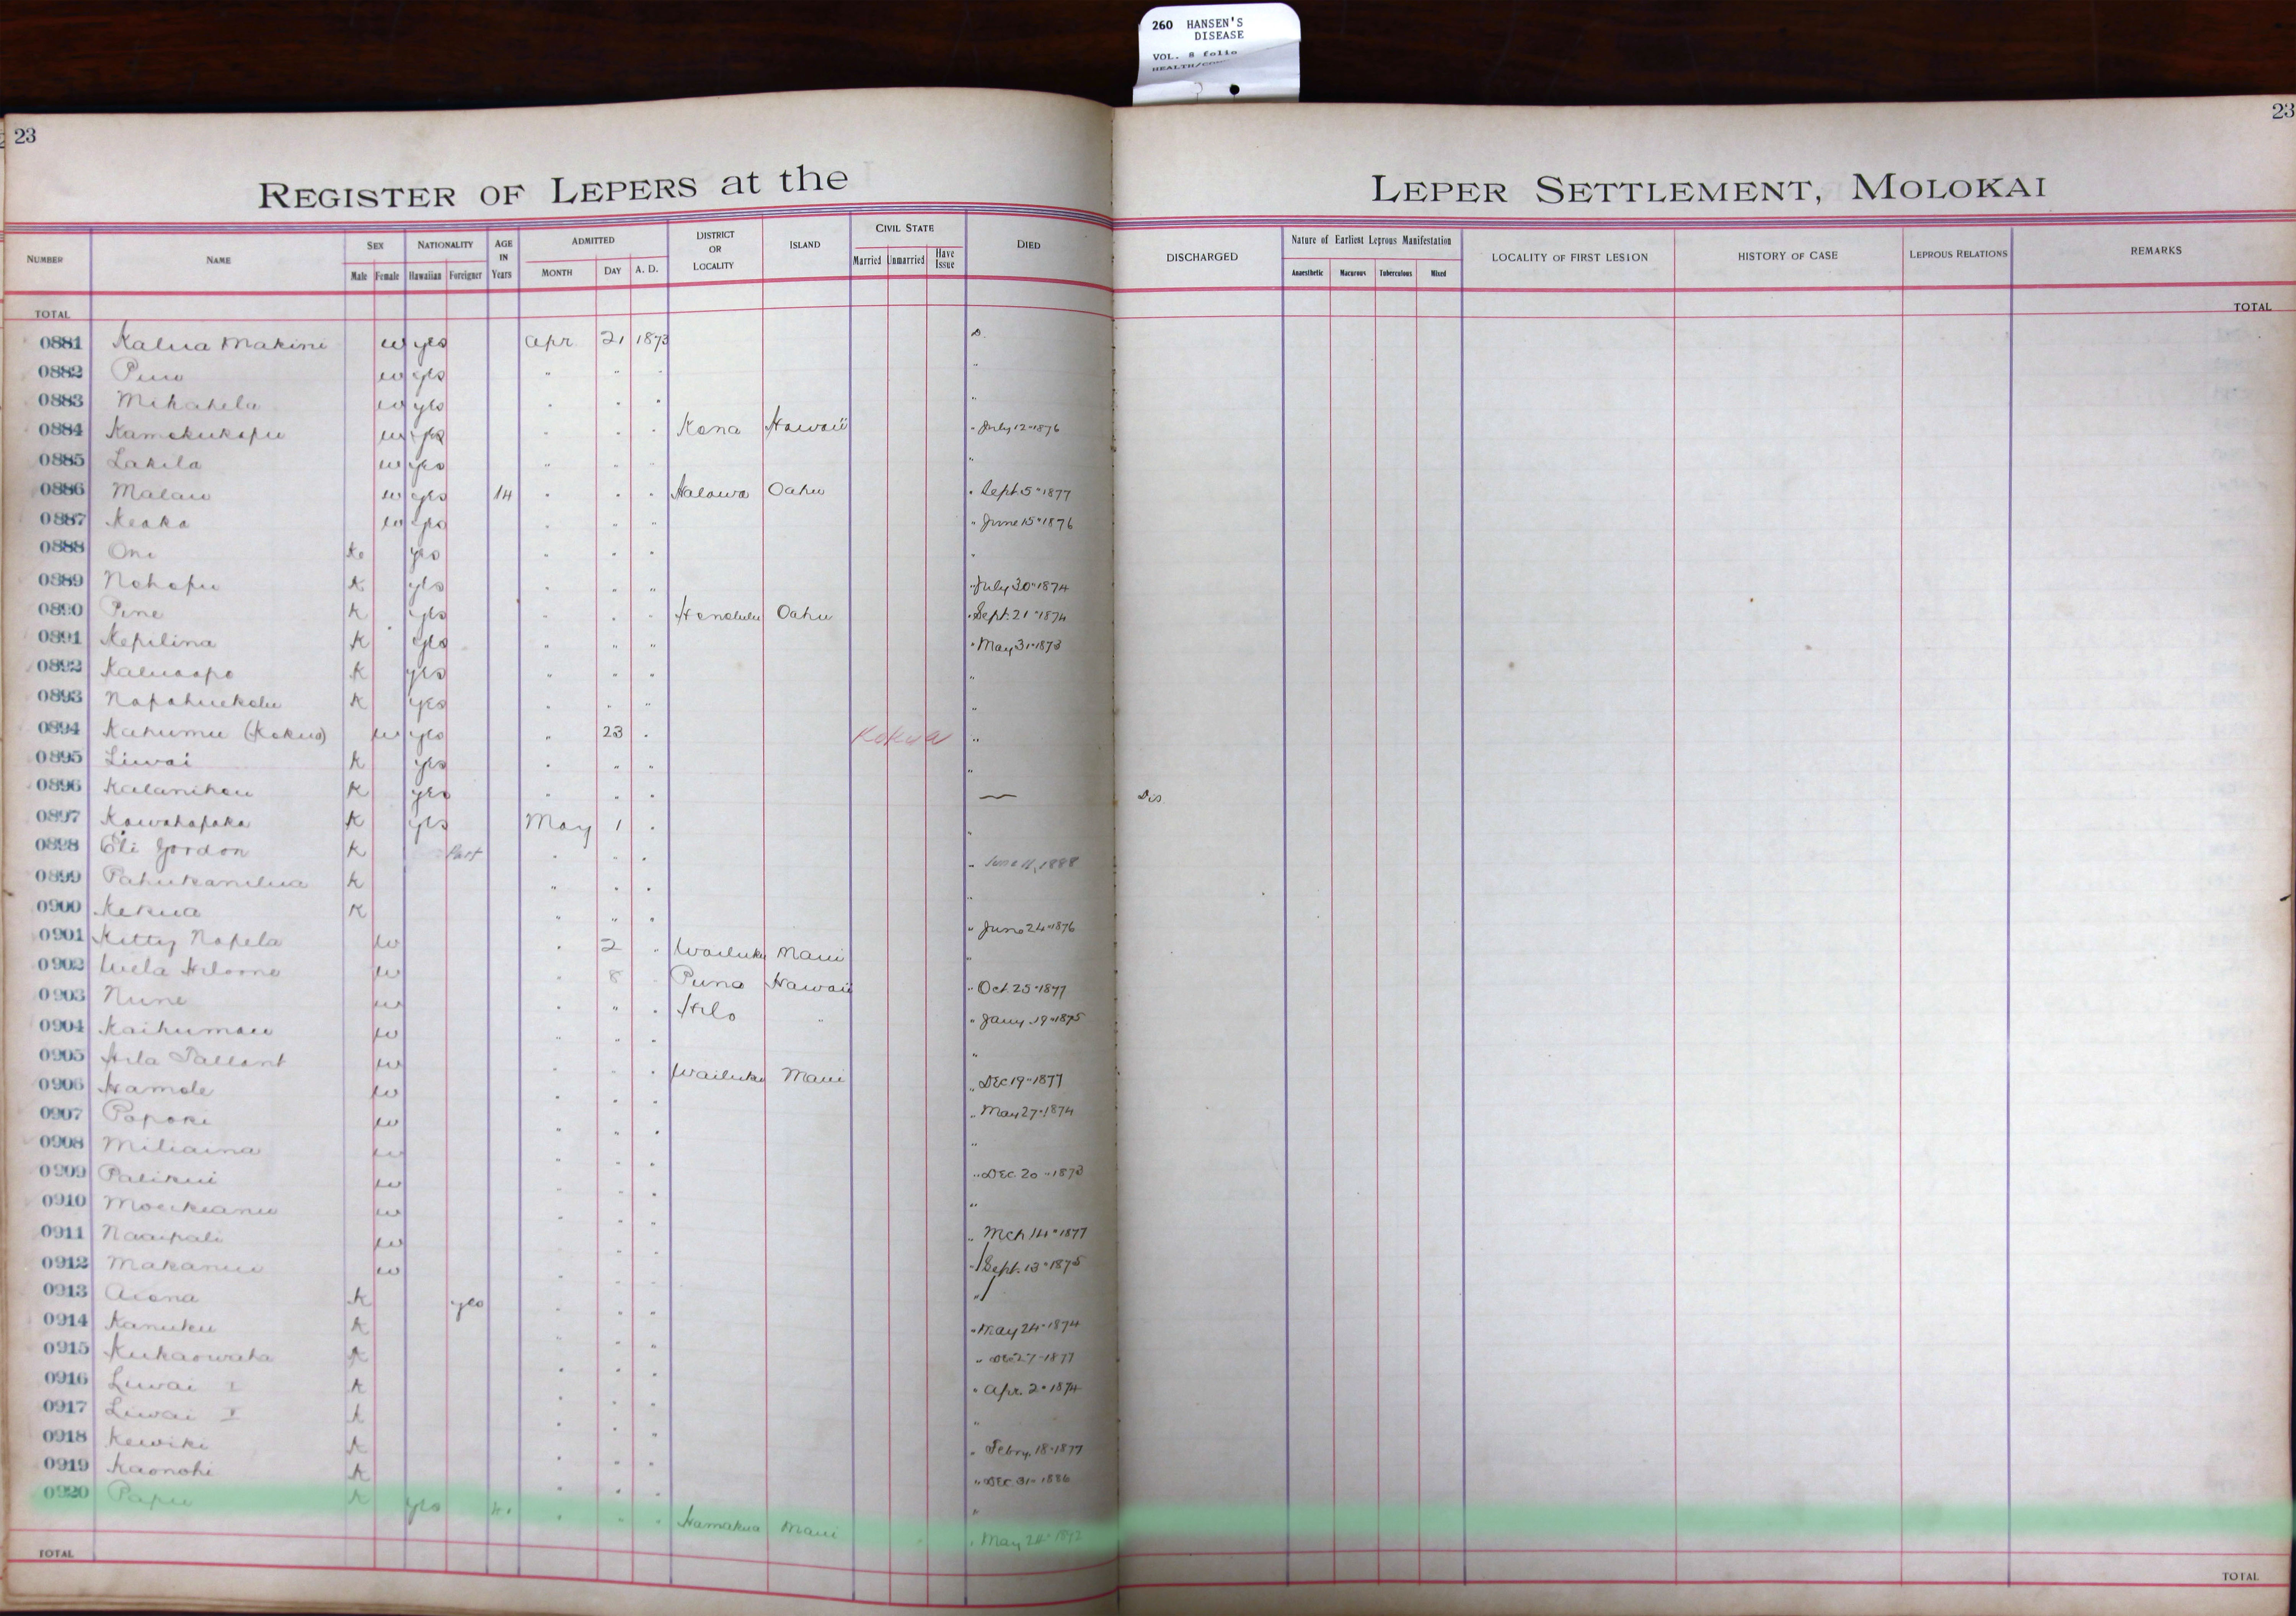 260 HANSEN'S
DISEASE
VOL. 8 folio
23
23
REGISTER OF LEPERS at the LEPER SETTLEMENT, MOLOKAI
NUMBER NAME SEX Male Female NATIONALITY Hawaiian Foreigner AGE IN Years ADMITTED MONTH DAY A. D. DISTRICT OR LOCALITY ISLAND CIVIL STATE Married Unmarried Have Issue DIED DISCHARGED Nature of Earliest Leprous Manifestation Anaesthetic Macurous Tuberculous Mixed LOCALITY OF FIRST LESION HISTORY OF CASE LEPROUS RELATIONS REMARKS
TOTAL TOTAL
0881 Kalua Makini w yes Apr. 21 1873 D.
0882 w yes " " " "
0883 Mikahela w yes " " " "
0884 Kamekukapu w yes " " " Kona Hawaii " July 12" 1876
0885 Lakila w yes " " " "
0886 Malau w yes 14 " " " Halawa Oahu " Sept. 5" 1877
0887 Keaka w yes " " " " June 15" 1876
0888 One K. yes " " " "
0889 Nohopu K yes " " " " July 30" 1874
0890 Pine K yes " " " Honolulu Oahu " Sept. 21" 1874
0891 Kepilina K yes " " " " May 31" 1873
0892 Kaluaopo K yes " " " "
0893 Napahuekolu K yes " " " "
0894 Kahumu (Kokua) w yes " 23 " Kokua "
0895 Liwai K yes " " " "
0896 Kalanihou K yes " " " — Dis
0897 Kawahapaka K yes May 1 " "
0898 Eli Gordon K Part " " " " June 11, 1888
0899 Pahukanilua K " " " "
0900 Kekua K " " " " June 24" 1876
0901 Kitty Napela w " 2 " Wailuku Maui "
0902 w " 8 Puna Hawaii " Oct. 25" 1877
0903 Nune w " " " Hilo " " Jany. 19" 1875
0904 Kaihumau w " " " "
0905 Hila Tallant w " " " Wailuku Maui " Dec 19" 1877
0906 Hamole w " " " " May 27" 1874
0907 Papoki w " " " "
0908 Miliaina w " " " " Dec. 20" 1873
0909 Palikui w " " " "
0910 Moekeanu w " " " " Mch 14" 1877
0911 Naaipali w " " " " Sept. 13" 1875
0912 Makanui w " " " "
0913 Aiona K yes " " " " May 24" 1874
0914 Kanuku K " " " " Dec 27" 1877
0915 Kukaowaha K " " " " Apr. 2" 1874
0916 Liwai I K " " " "
0917 Liwai K " " " " Febry. 18" 1877
0918 Kewiki K " " " " Dec. 31" 1886
0919 Kaonohi K " " " "
0920 Papu K yes " " " Hamakua Maui " May 24"
TOTAL TOTAL